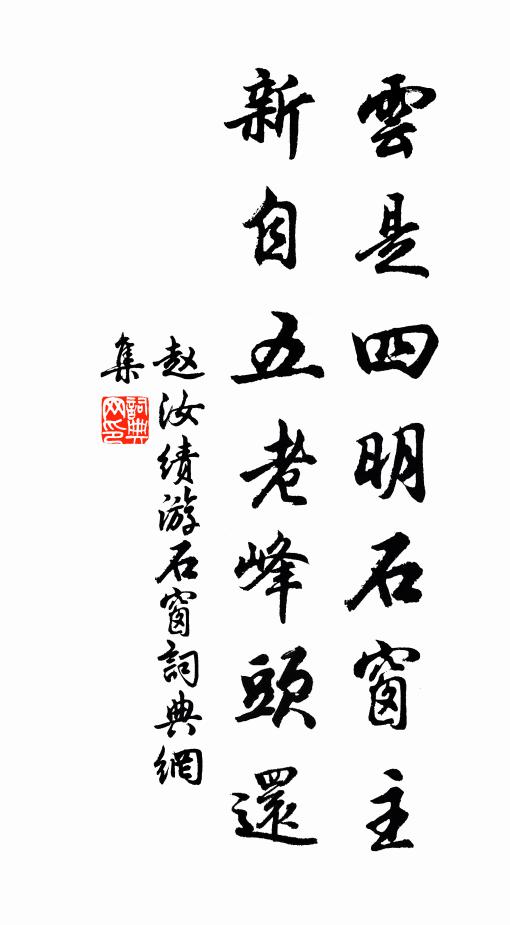 雲是四明石窗主
新自五老峰頭還
赵汝績游石窗詞典網
集
詞典网印